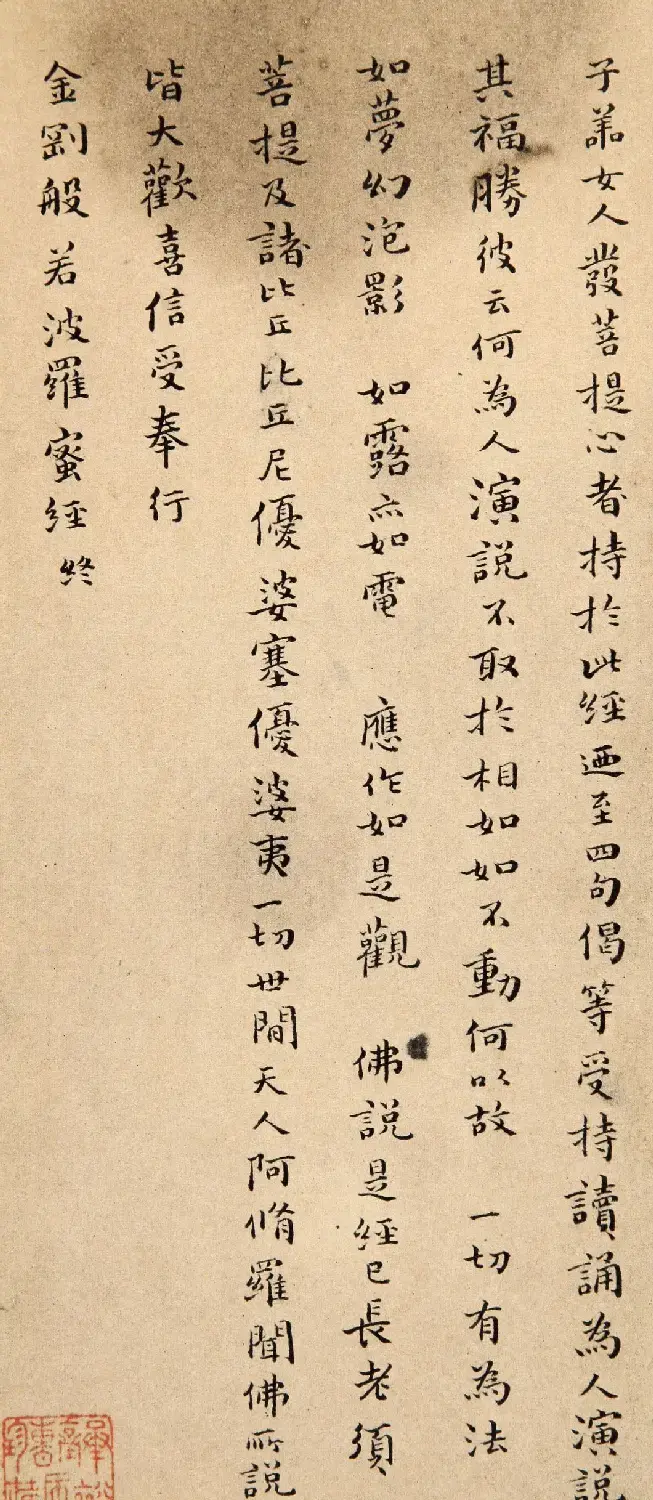 子苐女人發菩提心者持於此經迺至四句偈等受持讀誦為人演説
其福勝彼云何為人演説不取於相如如不動何以故 一切有為法
如夢幻泡影 如露亦如電 應作如是觀 佛説是經已長老須
菩提及諸比丘比丘尼優婆塞優婆夷一切世間天人阿脩羅聞佛所説
皆大歡喜信受奉行
金剛般若波羅蜜經終